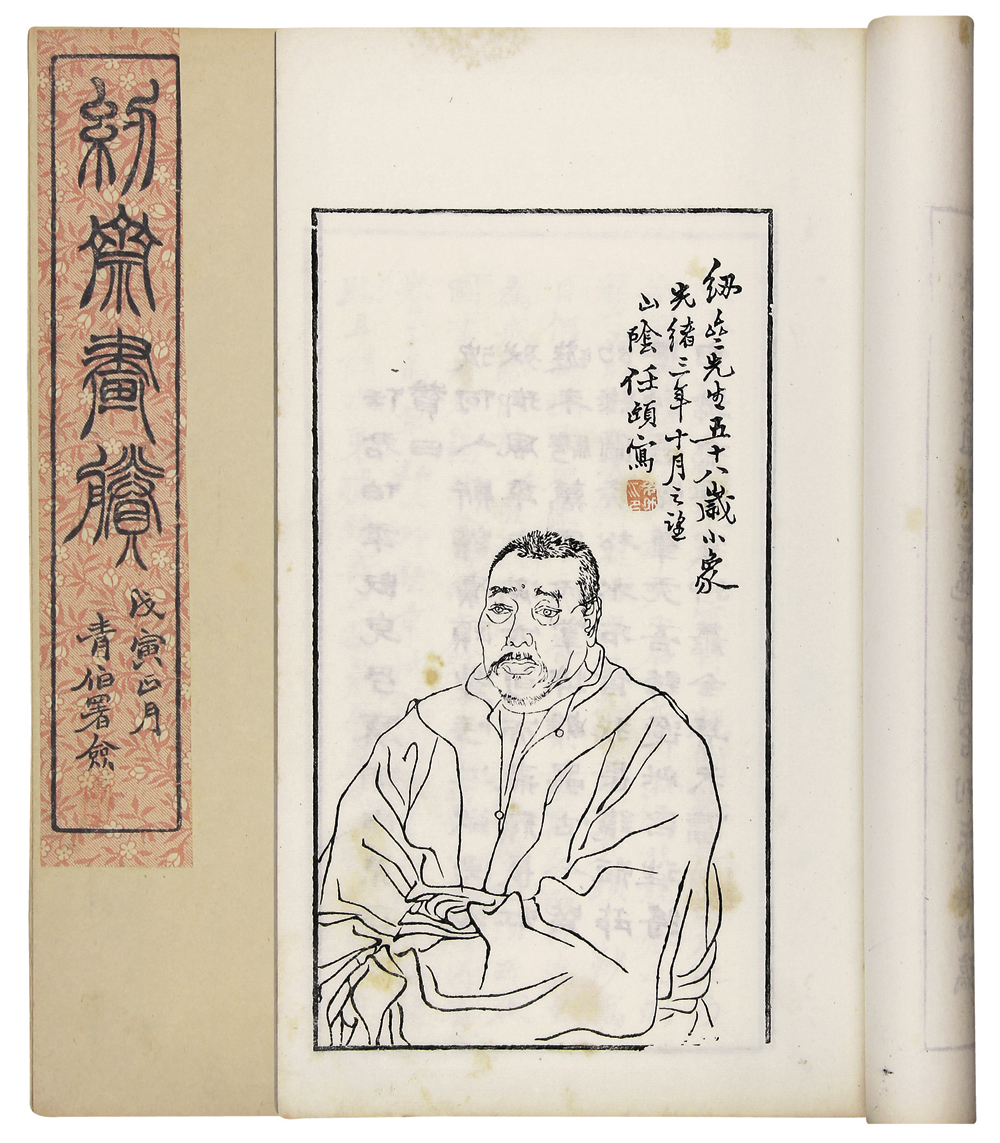 紉齋畫賸
戊寅正月
青伯署僉
紉齋先生五十八歲小象
光緒三年十月之望
山陰任頤寫